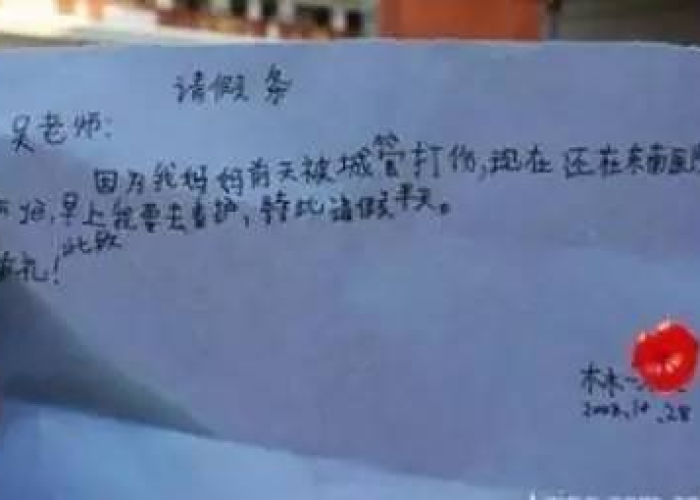 请假条
吴老师:
因为我妈妈前天被城管打伤,现在还在东南医
早上我要去看护,特此请假半天。
此致
礼!
林
10.28